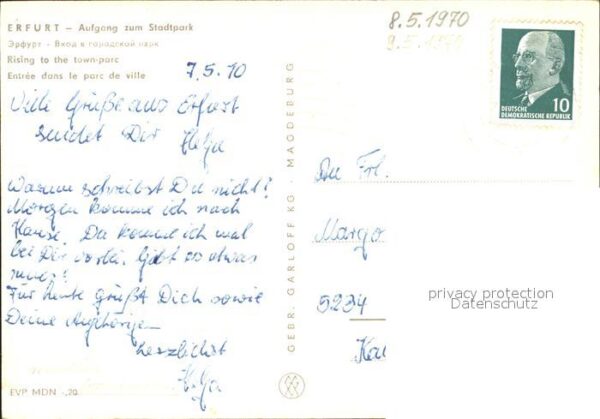 ERFURT – Aufgang zum Stadtpark
Эрфурт – Вход в городской парк
Rising to the town-parc
Entrée dans le parc de ville
7.5.70
Viele Grüße aus Erfurt
sendet Dir Helja
Warum schreibst Du nicht?
Morgen komme ich nach
Hause. Da komme ich mal
bei Dir vorbei. Gibt es etwas
neues?
Für heute grüßt Dich sowie
Deine Angehörigen
herzlichst
Helja
EVP MDN -,20
GEBR. GARLOFF KG, MAGDEBURG
8.5.1970
9.5.1970
DEUTSCHE
DEMOKRATISCHE REPUBLIK
10
An Frl.
Margo
5234
privacy protection
Datenschutz